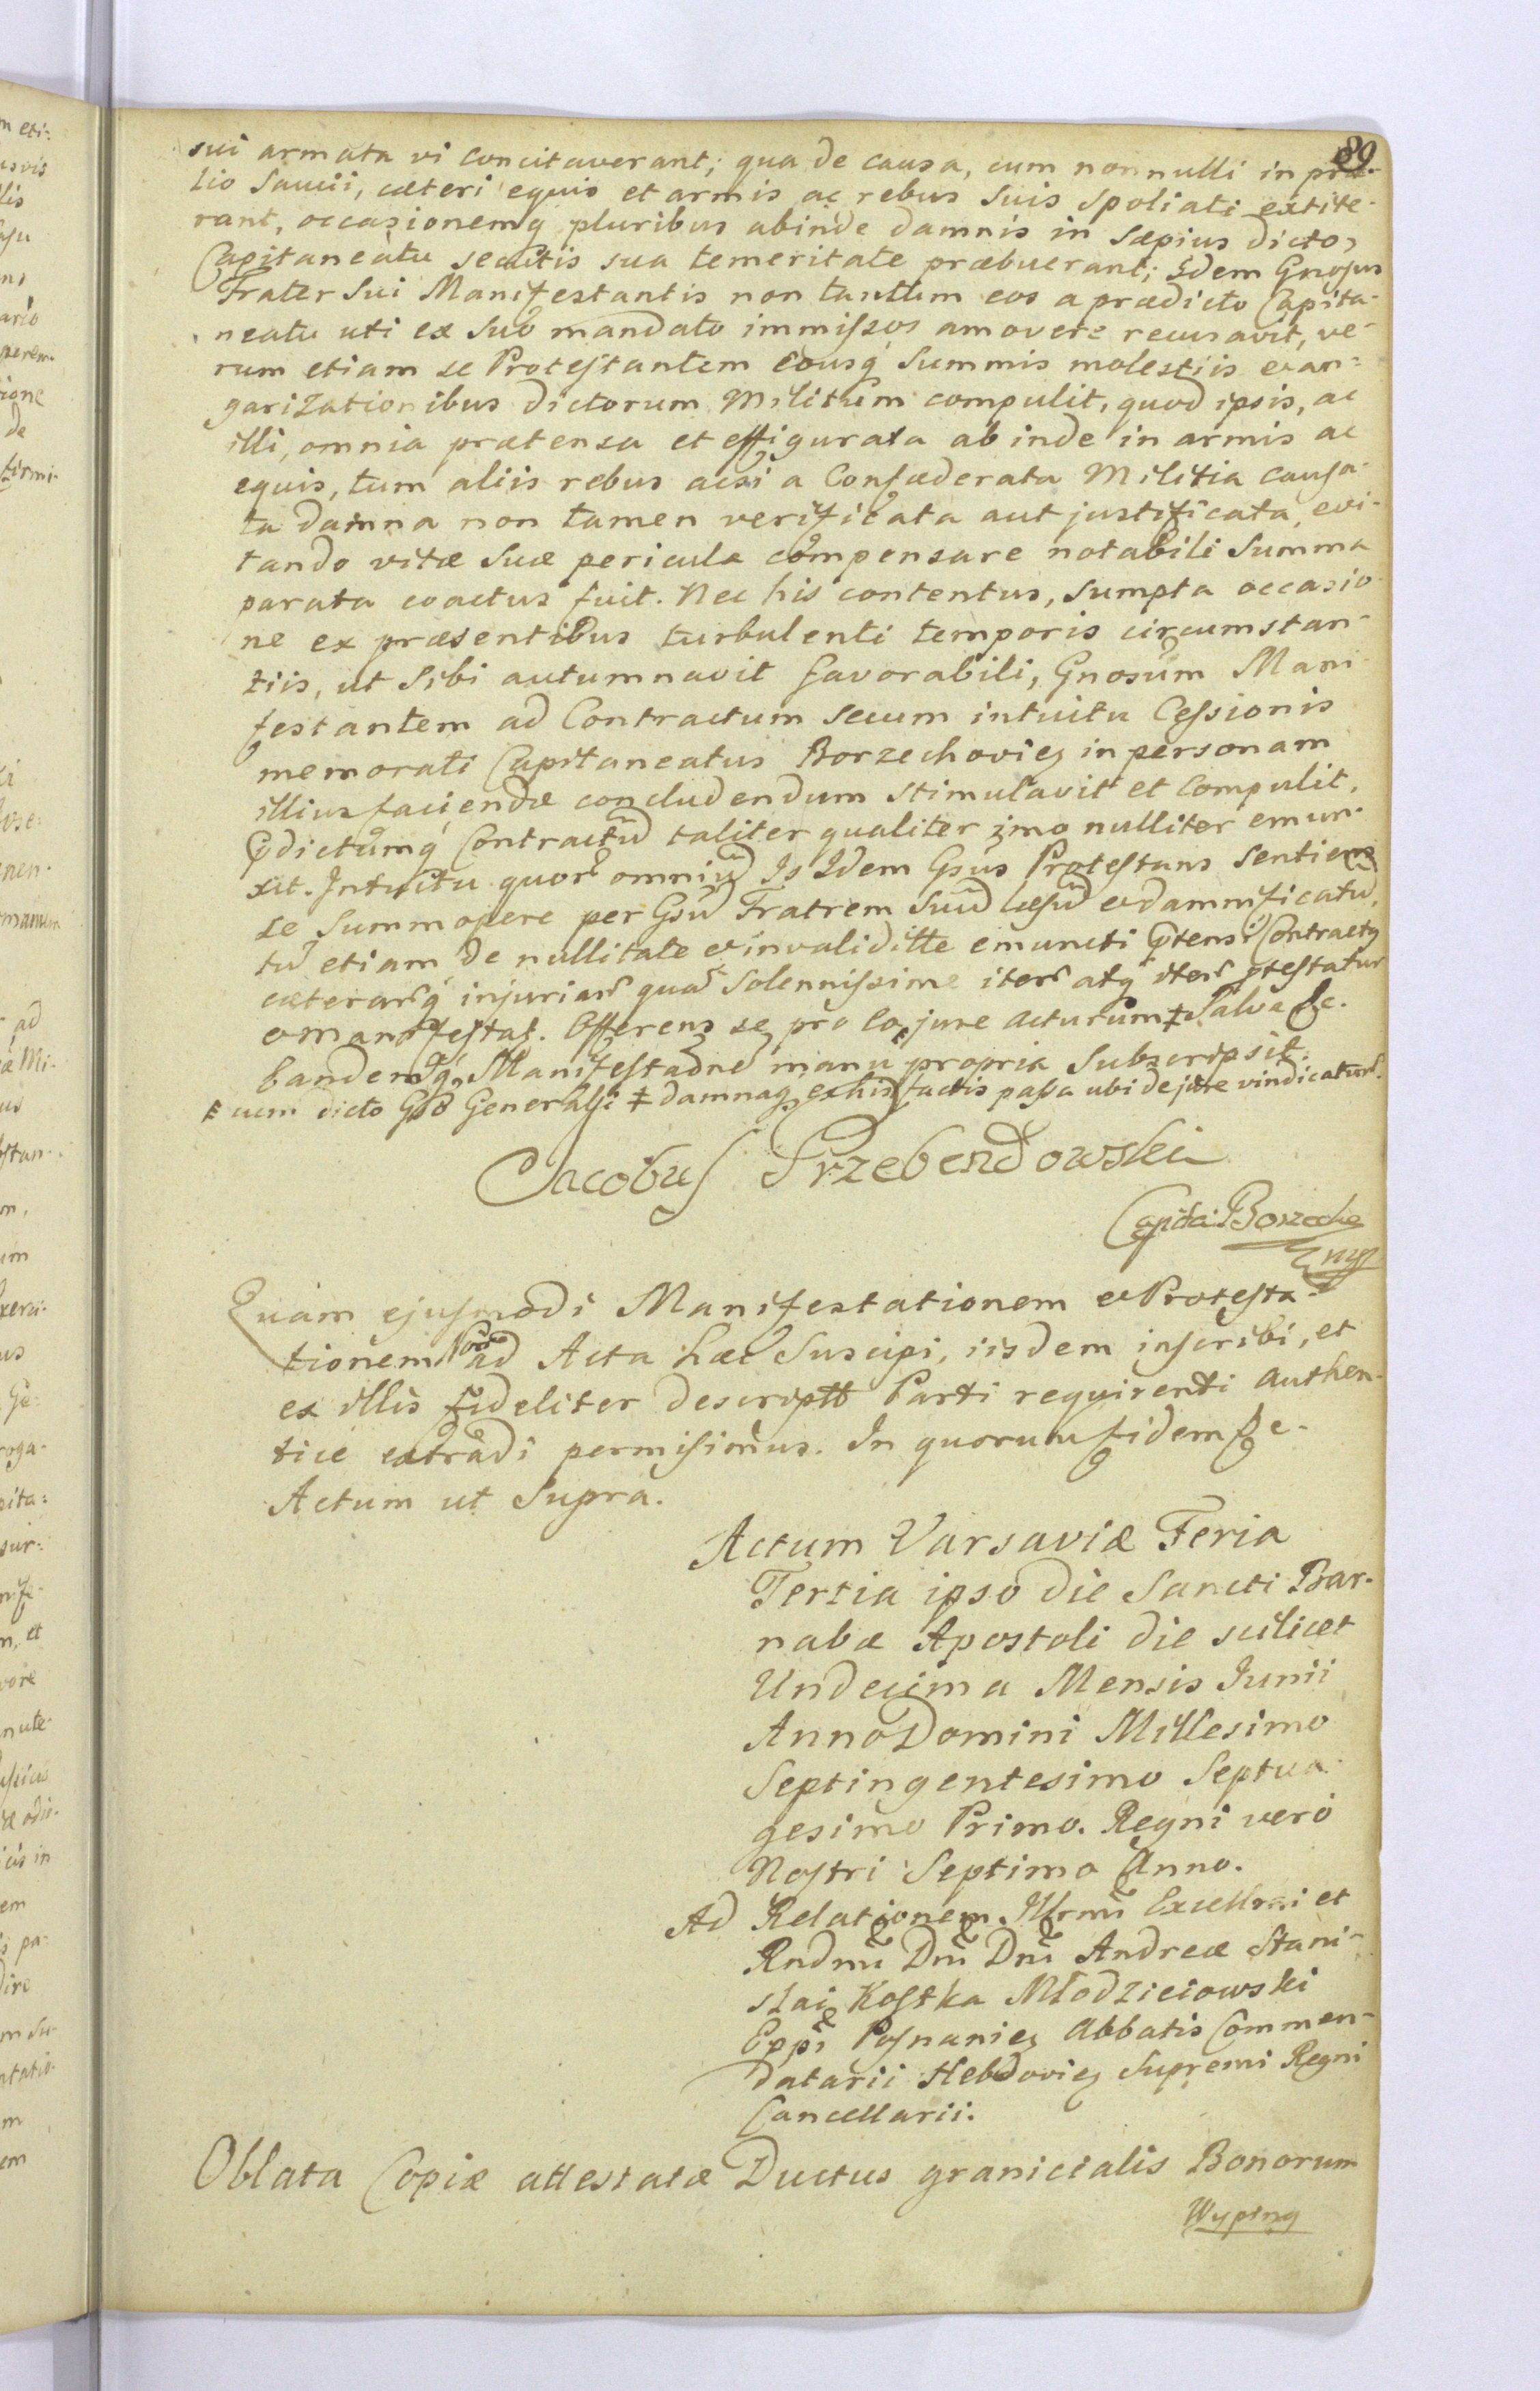 89.
sui armata vi concitaverant; qua de causa, cum nonnulli in præ-
lio Saucii, cæteri equis et armis ac rebus suis spoliati extite-
rant, occasionemq pluribus abinde damnis in sæpius dicto
Capitaneatu secutis sua temeritate præbuerant; Idem Gnosus
Frater Sui Manifestantis non tantum eos a prædicto Capita-
neatu uti ex suo mandato immissos amovere recusavit, ve-
rum etiam se Protestantem eousq summis molestiis et an=
garizationibus dictorum Militum compulit, quod ipsis, ac
illi, omnia prætensa et effigurata ab inde in armis ac
equis, tum aliis rebus acsi a Confæderata Militia causa-
ta damna non tamen verificata aut justificata, evi-
tando vitæ suæ pericula compensare notabili Summa
parata coactus fuit. Nec his contentus, sumpta occasio-
ne ex præsentibus turbulenti temporis circumstan-
tiis, ut Sibi autumnavit favorabili, Gnosum Mani-
festantem ad Contractum secum intuitu Cessionis
memorati Capitaneatus Borzechovien in personam
illius faciendæ concludendum stimulavit et compulit,
pdictumq Contractu taliter qualiter imo nulliter emun-
xit. Intuitu quor omniu Is Idem Gsus Protestans Sentiens
se Summopere per Gsu Fratrem Suu læsu et damnificatu,
tu etiam de nullitate et invaliditte emuncti ptensi Contractus
cæterarq injuriar quar Solennissime iter atq iter ptestatur
et manifestat. Offerens se pro eo jure acturum ‡ Salva &c.
Eandemq Manifestaone manu propria Subscripsit.
cum dicto Gso Generali ‡ damnaq ex his factis passa ubi de jure vindicatur.
Jacobus Przebendowski
Capita: Borzecho
Quam ejusmodi Manifestationem et Protesta-
tionem Nos ad Acta hæc Suscipi, iisdem inscribi, et
ex illis fideliter descriptt Parti requirenti authen-
tice extradi permisimus. In quorum fidem &c-
Actum ut Supra.
Actum Varsaviæ Feria
Tertia ipso die Sancti Bar-
nabæ Apostoli die scilicet
Undecima Mensis Junii
Anno Domini Millesimo
Septingentesimo Septua-
gesimo Primo. Regni vero
Nostri Septimo Anno.
Ad Relationem Illrmi Excellmi et
Rndmi Dni Dni Andreæ Stani-
slai Kostka Młodzieiowski
Eppi Posnanien Abbatis Commen-
datarii Hebdovien Supremi Regni
Cancellarii.
Oblata Copiæ attestatæ Ductus granicialis Bonorum